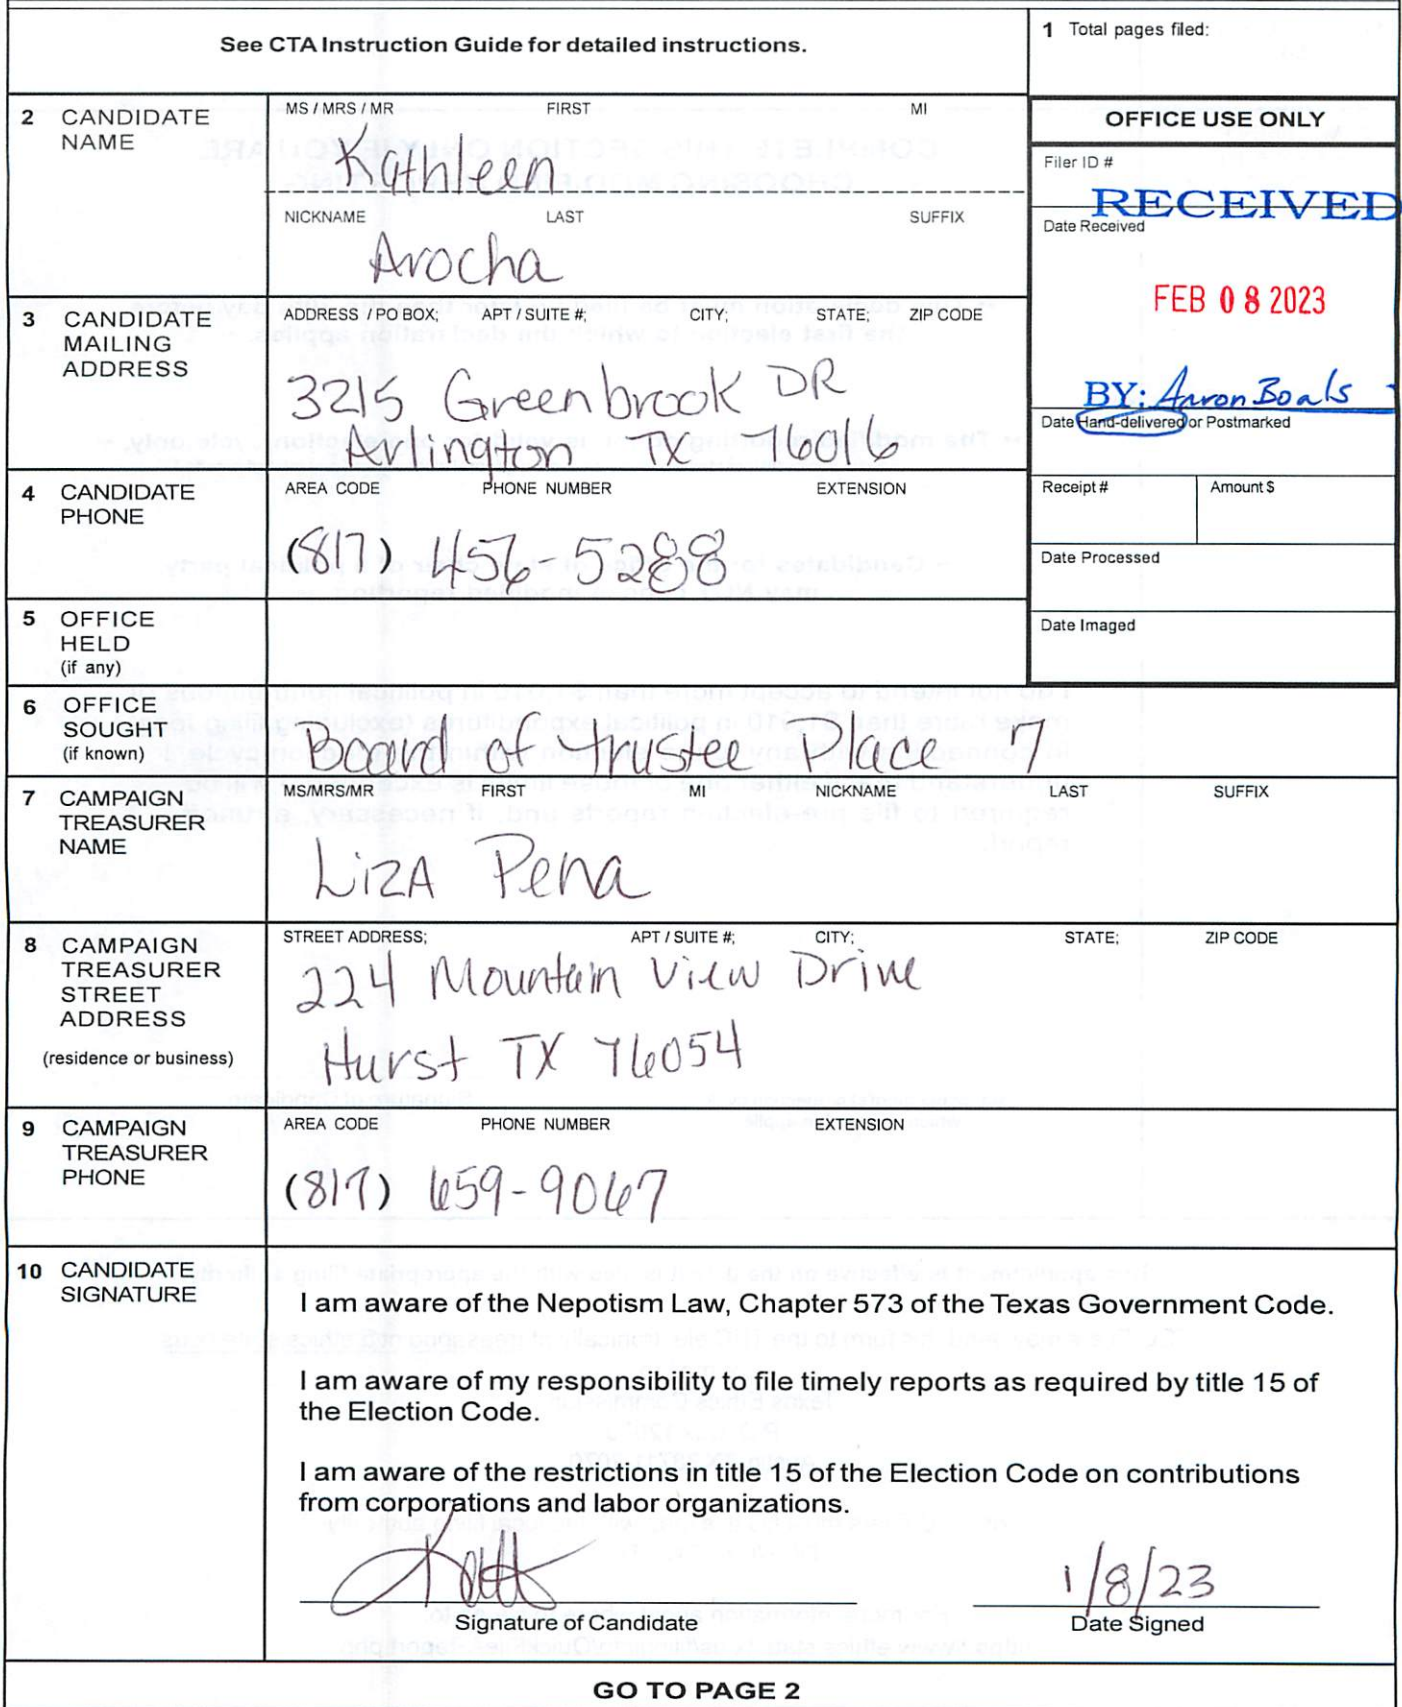 See CTA Instruction Guide for detailed instructions.
1 Total pages filed:
2 CANDIDATE NAME
MS / MRS / MR FIRST MI
Kathleen
NICKNAME LAST SUFFIX
Arocha
OFFICE USE ONLY
Filer ID #
RECEIVED
Date Received
FEB 08 2023
BY: Aaron Boals
Date Hand-delivered or Postmarked
Receipt # Amount $
Date Processed
Date Imaged
3 CANDIDATE MAILING ADDRESS
ADDRESS / PO BOX; APT / SUITE #; CITY; STATE; ZIP CODE
3215 Greenbrook DR
Arlington TX 76016
4 CANDIDATE PHONE
AREA CODE PHONE NUMBER EXTENSION
(817) 456-5288
5 OFFICE HELD (if any)
6 OFFICE SOUGHT (if known)
Board of trustee Place 7
7 CAMPAIGN TREASURER NAME
MS/MRS/MR FIRST MI NICKNAME LAST SUFFIX
LizA Pena
8 CAMPAIGN TREASURER STREET ADDRESS
(residence or business)
STREET ADDRESS; APT / SUITE #; CITY; STATE; ZIP CODE
224 Mountain View Drive
Hurst TX 76054
9 CAMPAIGN TREASURER PHONE
AREA CODE PHONE NUMBER EXTENSION
(817) 659-9067
10 CANDIDATE SIGNATURE
I am aware of the Nepotism Law, Chapter 573 of the Texas Government Code.
I am aware of my responsibility to file timely reports as required by title 15 of
the Election Code.
I am aware of the restrictions in title 15 of the Election Code on contributions
from corporations and labor organizations.
1/8/23
Signature of Candidate Date Signed
GO TO PAGE 2